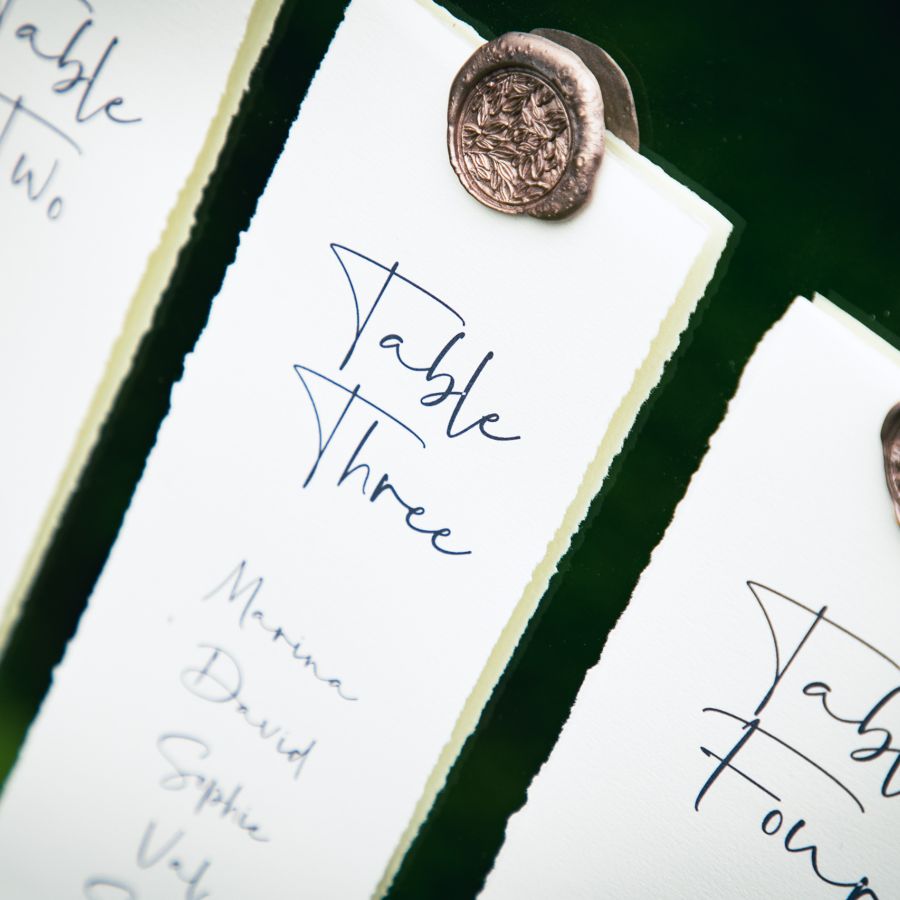 Table
Two
Table
Three
Marina
David
Sophie
Table
Four